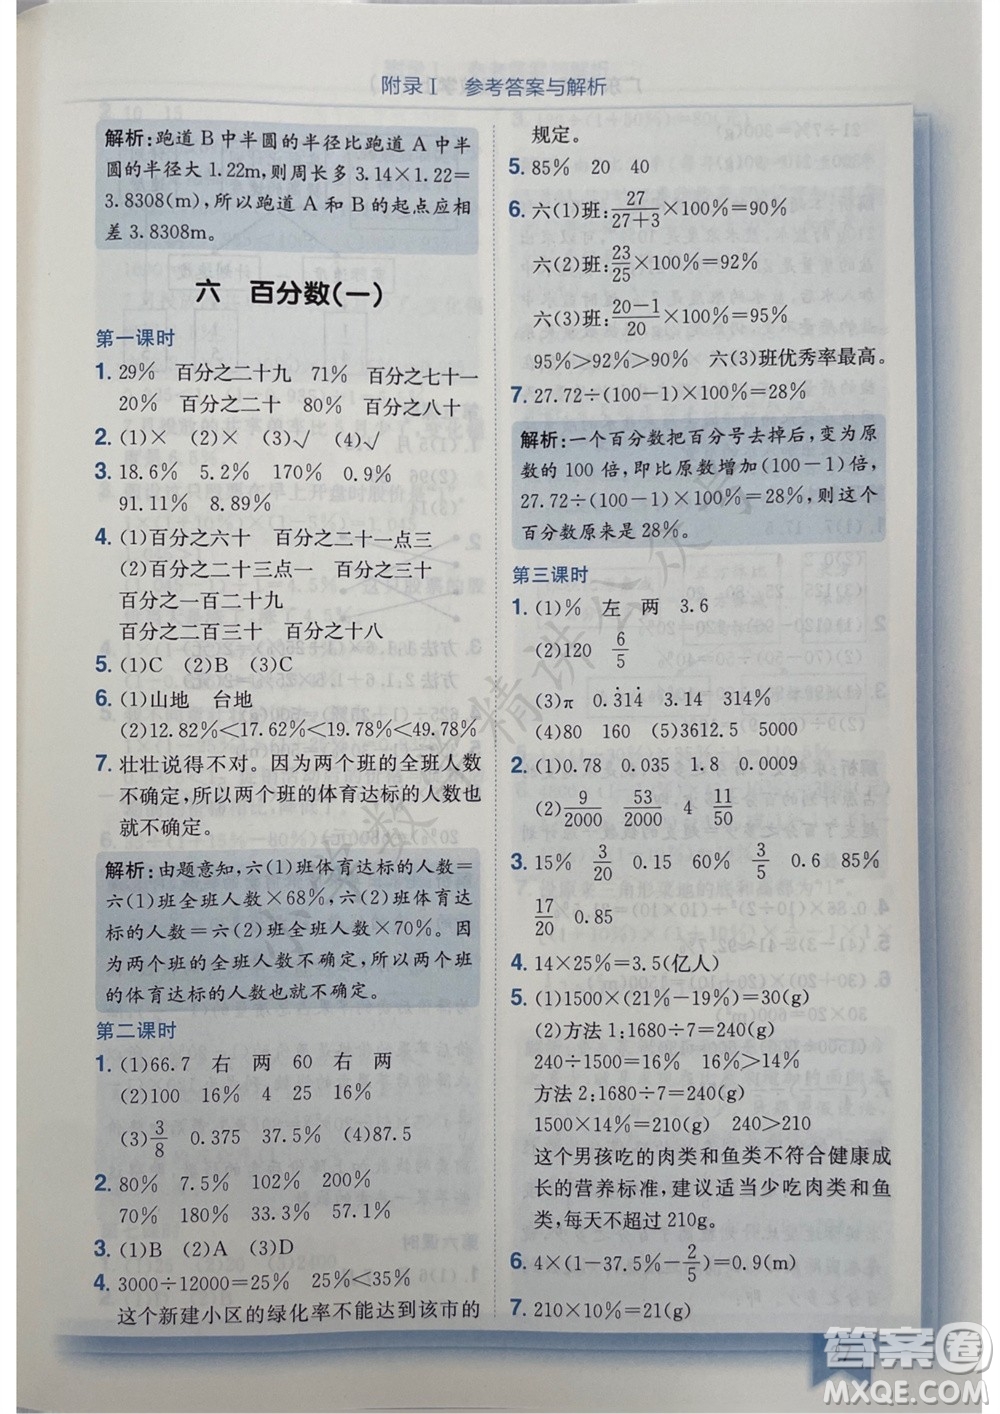 附录Ⅰ 参考答案与解析
解析:跑道 B 中半圆的半径比跑道 A 中半
圆的半径大 1.22m,则周长多 3.14×1.22=
3.8308(m),所以跑道 A 和 B 的起点应相
差 3.8308m。
六 百分数(一)
第一课时
1. 29% 百分之二十九 71% 百分之七十一
20% 百分之二十 80% 百分之八十
2. (1)× (2)× (3)√ (4)√
3. 18.6% 5.2% 170% 0.9%
91.11% 8.89%
4. (1)百分之六十 百分之二十一点三
(2)百分之二十三点一 百分之七
百分之一百二十九
百分之二百三十 百分之十八
5. (1)C (2)B (3)C
6. (1)山地 台地
(2)12.82%<17.62%<19.78%<49.78%
7. 壮壮说得不对。因为两个班的全班人数
不确定,所以两个班的体育达标的人数也
就不确定。
解析:由题意知,六(1)班体育达标的人数=
六(1)班全班人数×68%,六(2)班体育达
标的人数=六(2)班全班人数×70%。因
为两个班的全班人数不确定,所以两个班
的体育达标的人数也就不确定。
第二课时
1. (1)66.7 右 两 60 右 两
(2)100 16% 4 25 16%
(3)3/8 0.375 37.5% (4)87.5
2. 80% 7.5% 102% 0.6%
70% 180% 33.3% 57.1%
3. (1)B (2)A (3)D
4. 3000÷12000=25% 25%<35%
这个新建小区的绿化率不能达到该市的
规定。
5. 85% 20 40
6. 六(1)班:27/(27+3)×100%=90%
六(2)班:23/25×100%=92%
六(3)班:(20-1)/20×100%=95%
95%>92%>90% 六(3)班优秀率最高。
7. 27.72÷(100-1)×100%=28%
解析:一个百分数把百分号去掉后,变为原
数的 100 倍,即比原数增加(100-1)倍,
27.72÷(100-1)×100%=28%,所以这个
百分数原来是 28%。
第三课时
1. (1)% 左 两 3.6
(2)120 6/5
(3)π 0.3̇14̇ 3.14 314%
(4)80 160 (5)3612.5 5000
2. (1)0.78 0.035 1.8 0.0009
(2)9/2000 53/2000 4 11/50
3. 15% 3/20 0.15 60% 3/5 0.6 85%
17/20 0.85
4. 14×25%=3.5(亿人)
5. (1)1500×(21%-19%)=30(g)
(2)方法 1:1680÷7=240(g)
240÷1500=16% 16%>14%
方法 2:1680÷7=240(g)
1500×14%=210(g) 240>210
这个男孩吃的肉类和鱼类不符合健康成
长的营养标准,建议适当少吃肉类和鱼
类,每天不超过 210g。
6. 4×(1-37.5%-2/5)=0.9(m)
7. 210×10%=21(g)
答案圈
MXQE.COM